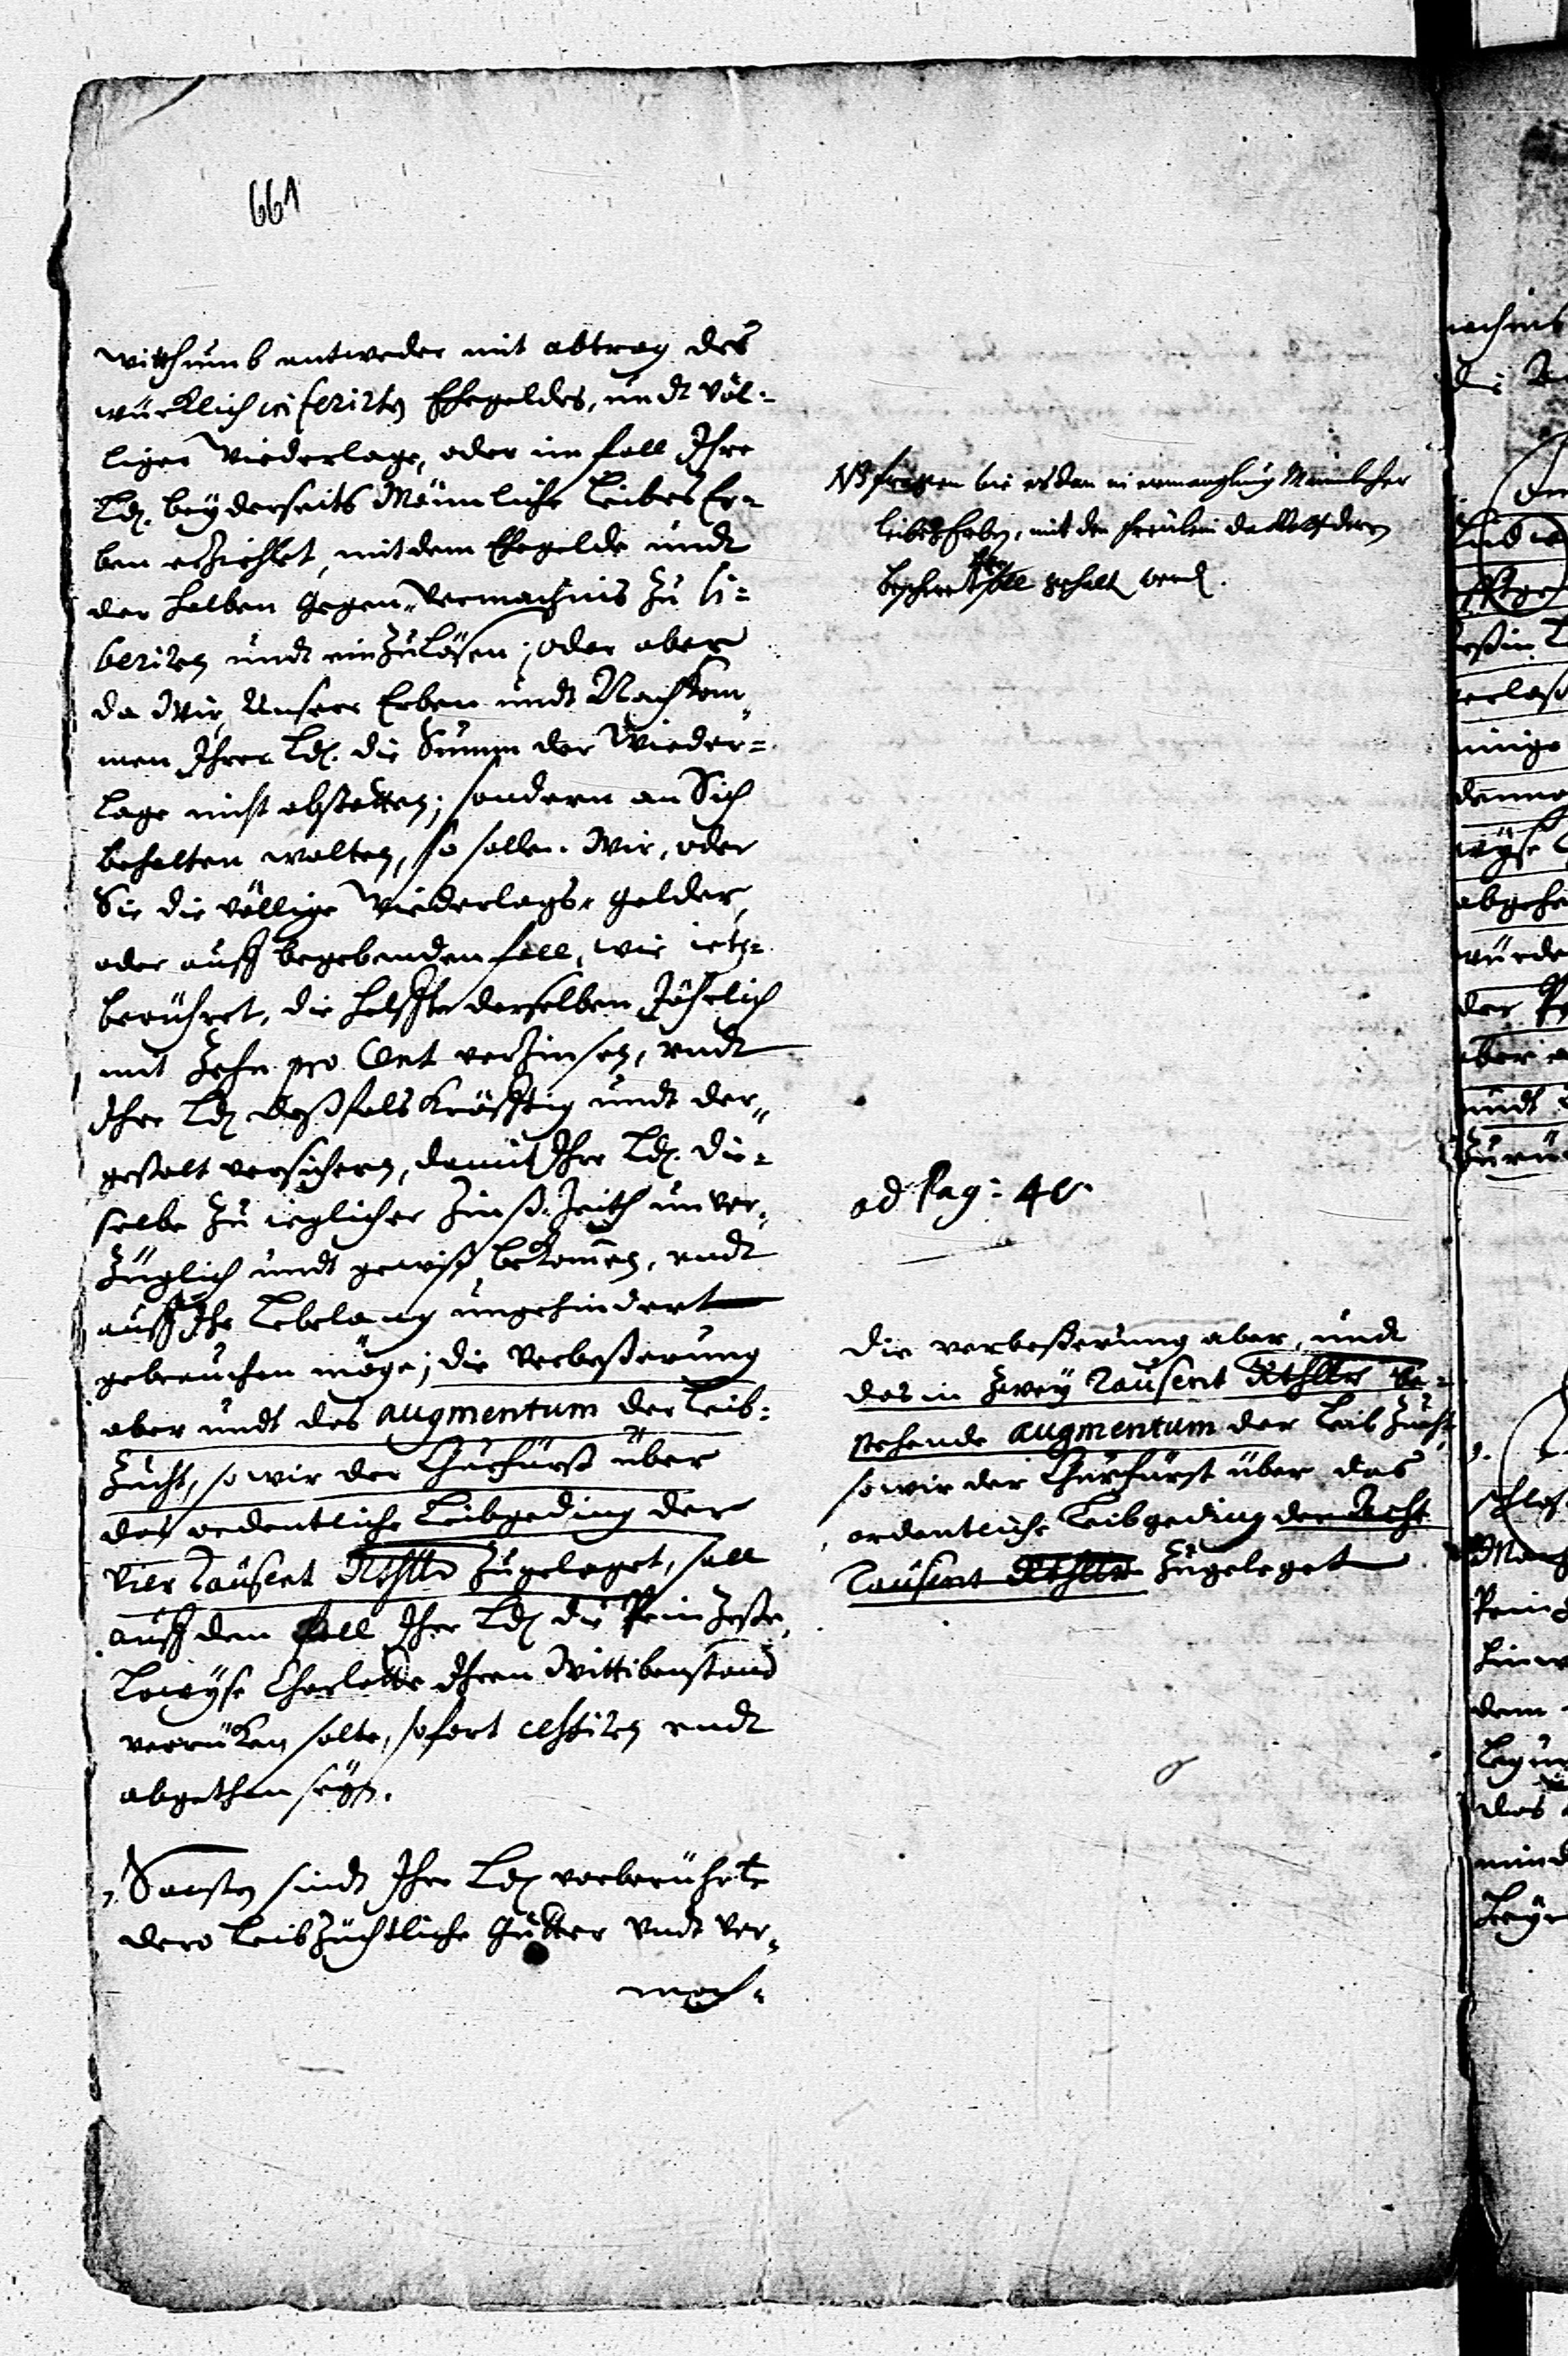 661
Witthumb entweder mit abtrag des
würcklich inferirten Ehegeldes, undt völ=
ligen Wiederlage, oder im fall Ihre
Ld. beyderseits Männliche Leibes Er=
ben erziehlet, mit dem Ehegelde undt
der halben Gegen-Vermachnis zu li=
beriren undt einzulösen; oder aber
da Wir, Unsere Erben undt Nachkom,
men Ihrer Ld. die Summ der Wieder=
lage nicht abstatten; sondern an Sich
behalten wolten, so sollen Wir, oder
Sie die völlige Wiederlags-gelder,
oder auff begebenden fall, wie ietz=
berühret, die helffte derselben Jährlich
mit Zehn pro Cent verzinsen, undt
Ihre Ld. deßfals kräfftig undt der=
gestalt versichern, damit Ihre Ld. die=
selbe zu ieglicher Zinß-Zeith unver,
züglich undt gewiß bekommen, undt
auff Ihr Lebelang ungehindert
gebrauchen möge; die Verbeßerung
aber undt das augmentum der Leib=
zucht, so wir der Churfürst über
das ordentliche Leibgeding der
Vier Tausent Rthllr zugeleget, soll
auff den fall Ihre Ld. die Prinzeßin,
Lowyse Charlotte Ihren Wittibenstand
verrüken solte, sofort cessiren undt
abgethan seyn.
Sonsten sindt Ihre Ld. vorberührte
dero Leibzüchtliche Gütter undt Ver,
mach=
NB fragen wie es dan in ermanglung Männlicher
leibes Erben, mit den freulein da Gott deren
beschere soll gehalten werd.
ad Pag: 40.
die verbeßerung aber, undt
das in Zwey Tausent Rthllr be=
stehende augmentum der Leibzucht
so wir der Churfürst über das
ordentliche Leibgeding der Acht
Tausent Rthllr zugeleget